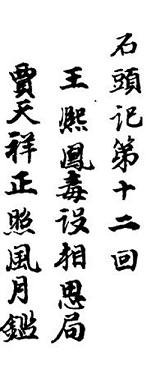 石頭记第十二回
王熈鳳毒设相思局
賈天祥正照風月鑑